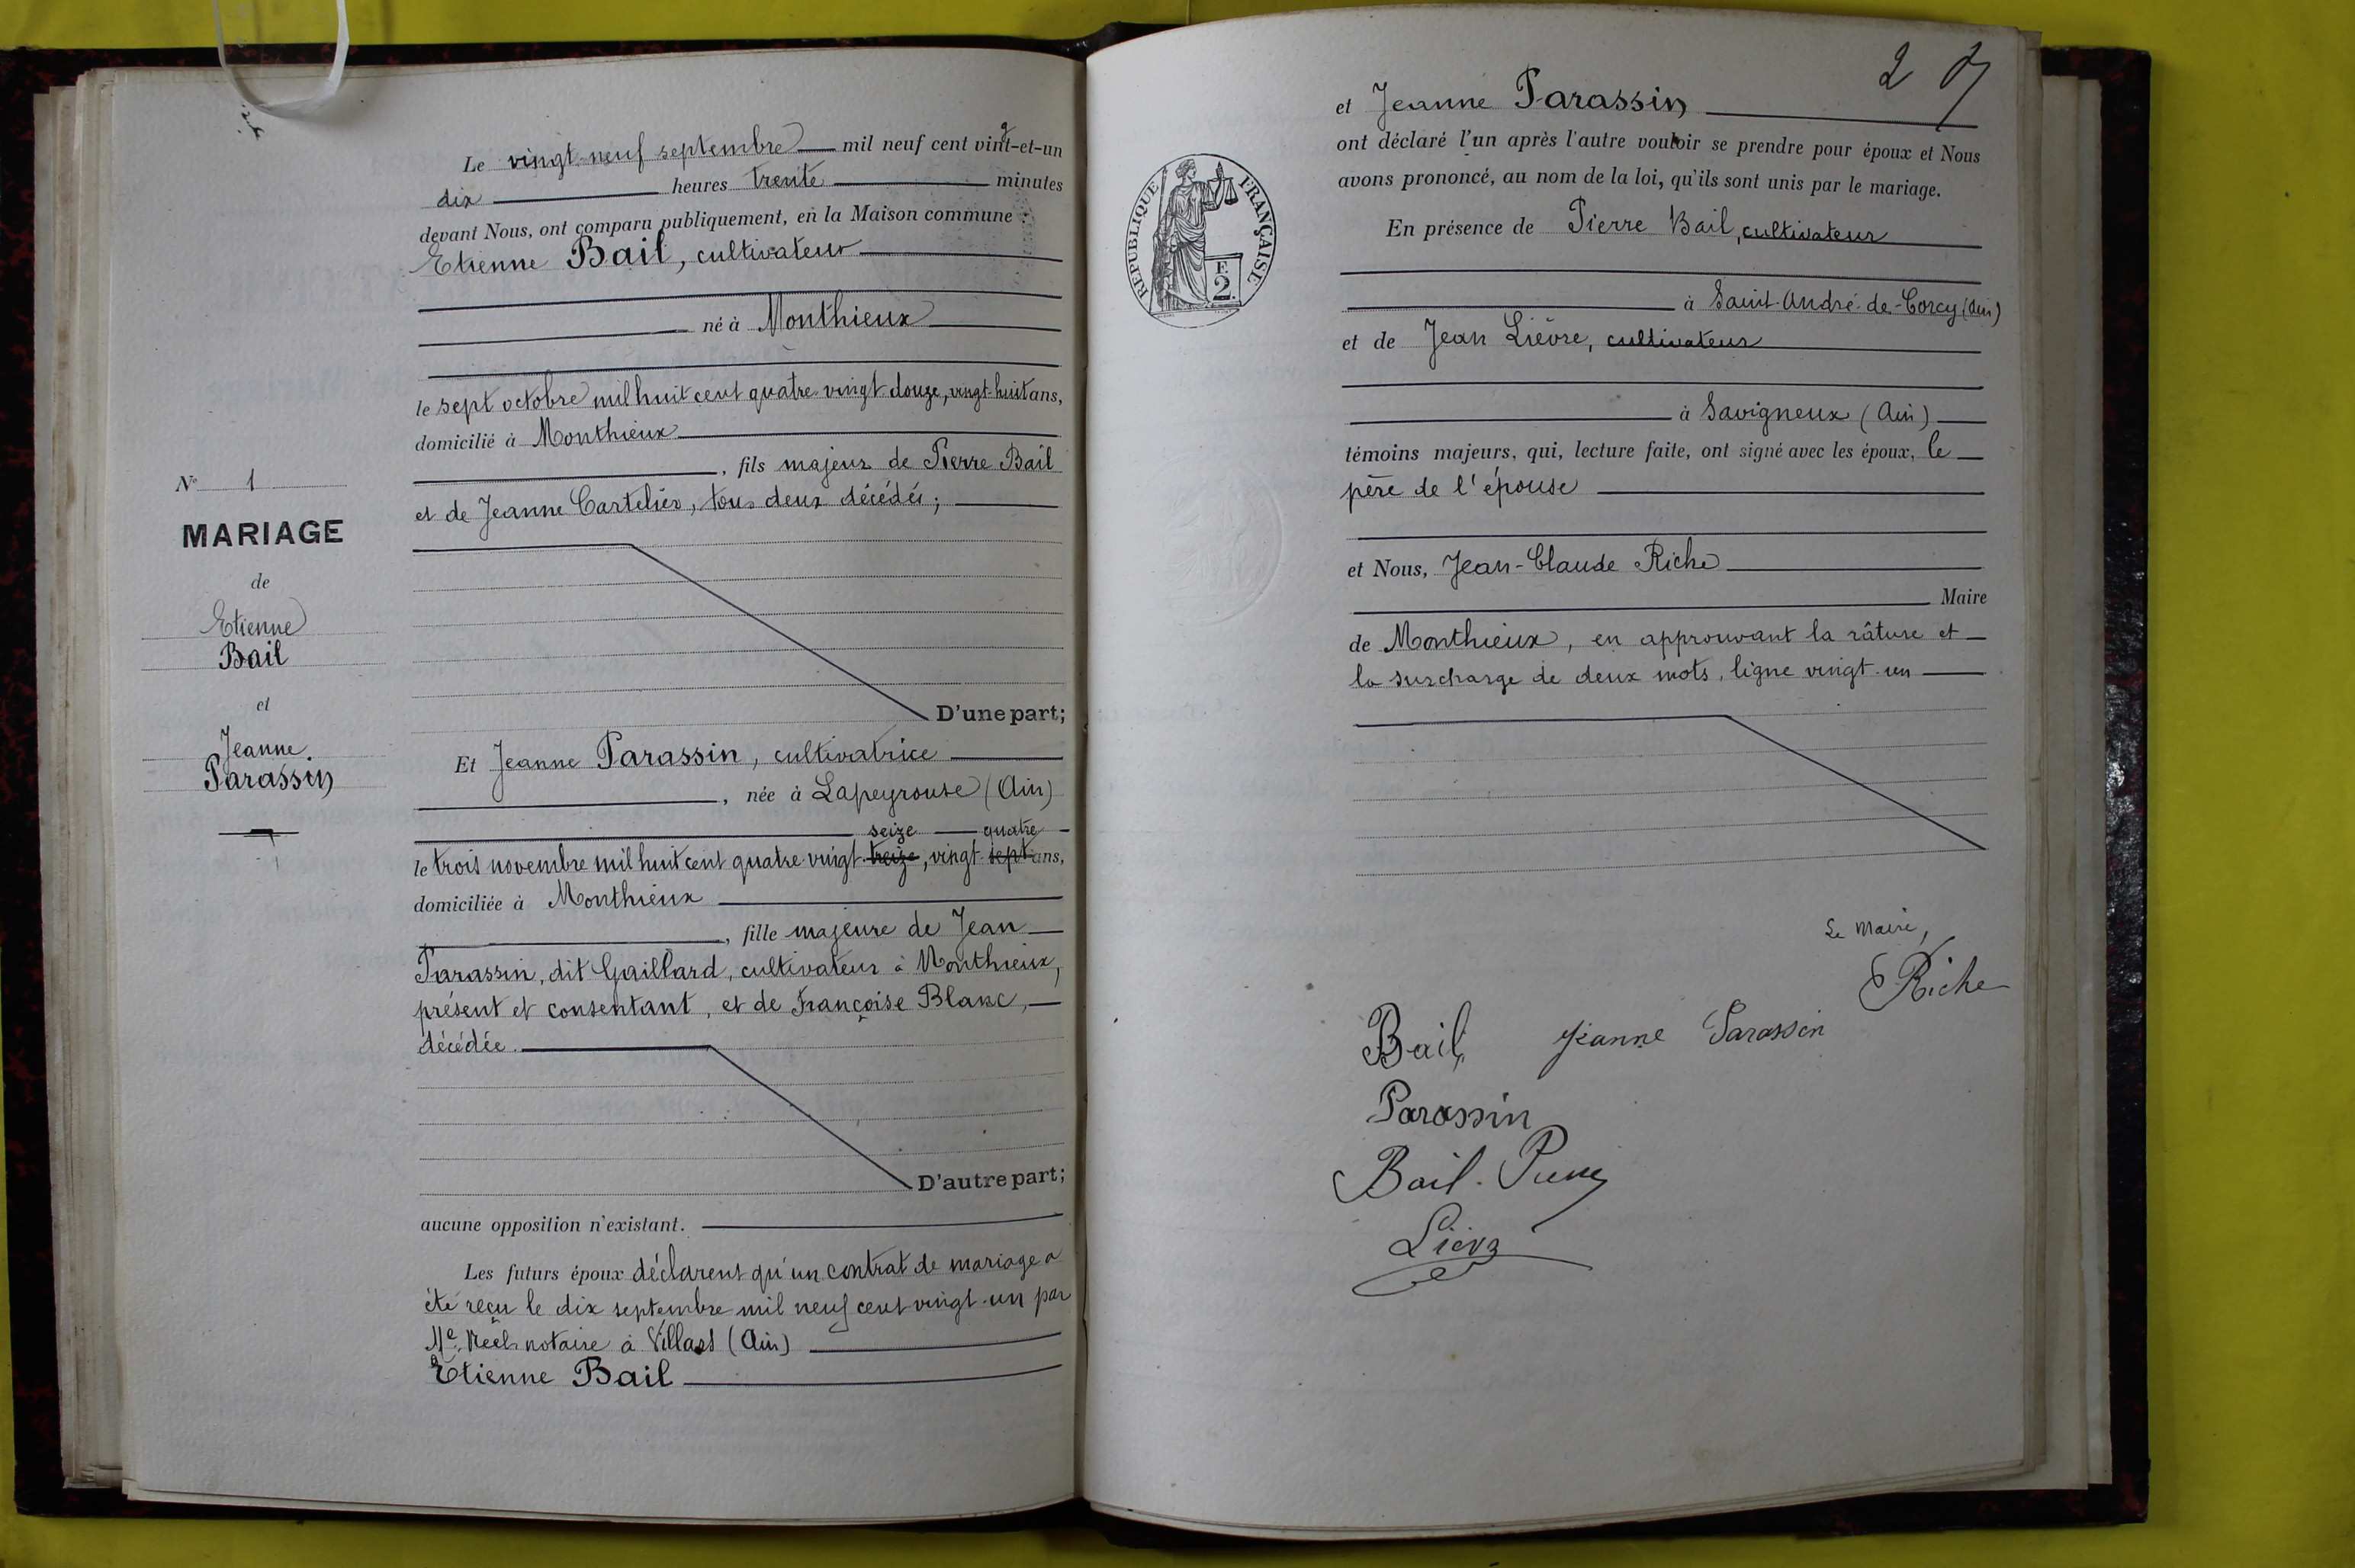 Le vingt-neuf septembre mil neuf cent vingt-et-un
dix heures trente minutes
devant Nous, ont comparu publiquement, en la Maison commune :
Etienne Bail, cultivateur
né à Monthieux
le sept octobre mil huit cent quatre vingt douze, vingt-huit ans,
domicilié à Monthieux
, fils majeur de Pierre Bail
et de Jeanne Cartelier, tous deux décédés ;
D'une part;
N° 1
MARIAGE
de
Etienne
Bail
et
Jeanne
Parassin
Et Jeanne Parassin, cultivatrice
, née à Lapeyrouse (Ain)
seize quatre
le trois novembre mil huit cent quatre-vingt treize, vingt-sept ans,
domiciliée à Monthieux
, fille majeure de Jean
Parassin, dit Gaillard, cultivateur à Monthieux,
présent et consentant, et de Françoise Blanc,
décédée.
D'autre part;
aucune opposition n'existant.
Les futurs époux déclarent qu'un contrat de mariage a
été reçu le dix septembre mil neuf cent vingt-un par
Me notaire à Villars (Ain)
Etienne Bail
2
et Jeanne Parassin
ont déclaré l'un après l'autre vouloir se prendre pour époux et Nous
avons prononcé, au nom de la loi, qu'ils sont unis par le mariage.
REPUBLIQUE FRANÇAISE
F.
2
En présence de Pierre Bail, cultivateur
à Saint-André-de-Corcy (Ain)
et de Jean Lièvre, cultivateur
à Savigneux (Ain)
témoins majeurs, qui, lecture faite, ont signé avec les époux, le
père de l'épouse
et Nous, Jean-Claude Riche
Maire
de Monthieux, en approuvant la râture et
la surcharge de deux mots, ligne vingt-un
Le Maire,
Riche
Bail Jeanne Parassin
Parassin
Bail Pierre